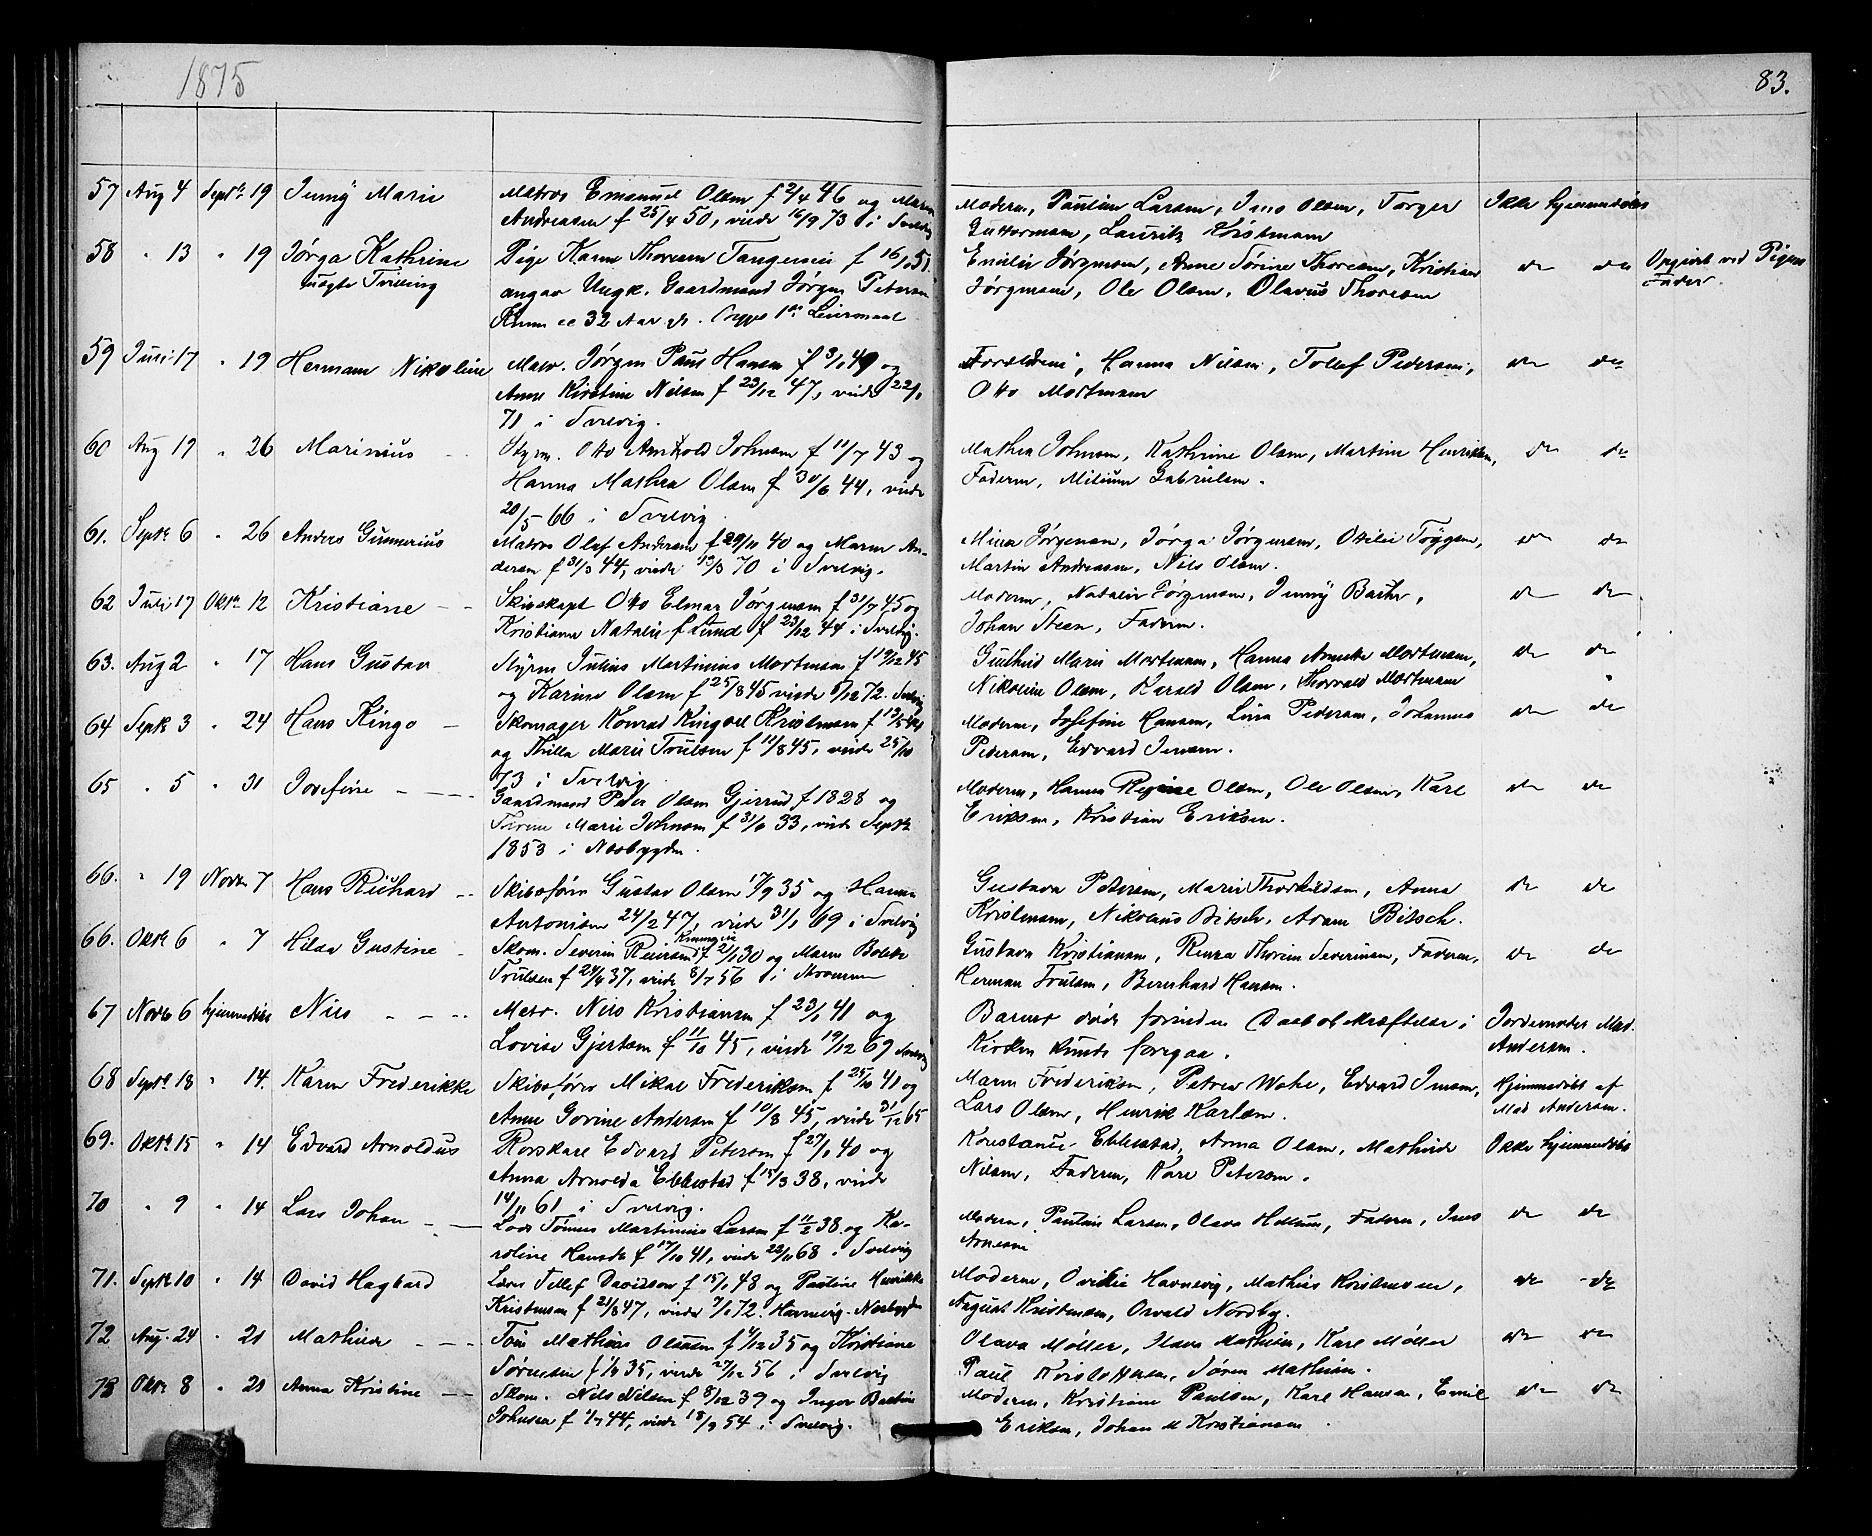 1875
83.
57 Aug 4 Septbr 19 Jenny Marie Matros Emanuel Olsen f 2/4 46 og Maren Moderen, Pauline Larsen, Jens Olsen, Torger Ikke hjemmedøbt
Andreasen f 25/4 50, viede 16/9 73 i Svelvig Guttormsen, Lauritz Kristensen
58 " 13 " 19 Jørga Kathrine Pige Karen Thoresen Tangerud f 16/10 51 Emilie Jørgensen, Anne Sørine Thoresen, Kristian do do Opgivet ved Pigens
uægte Tvilling angav Ungk. Gaardmand Jørgen Petersen Jørgensen, Ole Olsen, Olavus Thoresen Fader.
32 Aar gl. Begges 1ste Leiermaal
59 Juli 17 " 19 Herman Nikoline Matr. Jørgen Paus Hansen f 3/1 49 og Forældrene, Hanna Nilsen, Tollef Pedersen, do do
Anne Kirstine Nilsen f 23/12 47, viede 22/1 Otto Mortensen
71 i Svelvig.
60 Aug 19 " 26 Marinius Styrm. Otto Arnthold Johnsen f 11/7 43 og Mathea Johnsen, Kathrine Olsen, Martine Henriksen, do do
Hanna Mathea Olsen f 30/6 44, viede Faderen, Milium Gabrielsen.
20/5 66 i Svelvig
61. Septbr 6 " 26 Anders Gunnerius Matros Olaf Andersen f 29/10 40 og Maren An- Mina Jørgensen, Jørga Jørgensen, Otilie Tøygsen, do do
dersen f 31/3 44, viede 13/3 70 i Svelvig. Martin Andreasen, Nils Olsen.
62 Juli 17 Oktbr 12 Kristiane Skibskapt Otto Elmar Jørgensen f 31/7 45 og Moderen, Natalie Jørgensen, Jenny Bache, do do
Kristiane Natalie f Lund f 23/12 44 i Svelvig. Johan Steen, Faderen.
63. Aug 2 " 17 Hans Gustav Styrm Julius Martinius Mortensen f 19/12 45 Gunhild Marie Mortensen, Hanna Annette Mortensen, do do
og Karine Olsen f 25/8 45 viede 8/12 72. Svelvig Nikoline Olsen, Harald Olsen, Thorvald Mortensen
64 Septbr 3 " 24 Hans Kingo Skomager Konrad Ringvol Kristensen f 13/5 44 Moderen, Josefine Hansen, Lina Pedersen, Johannes do do
og Thilla Marie Trulsen f 11/8 45, viede 25/10 Pedersen, Edvard Jensen.
73 i Svelvig
65 " 5 " 31 Josefine Gaardmand Peder Olsen Gjerrud f 1828 og Moderen, Hanna Regine Olsen, Ole Olsen, Karl do do
Terene Marie Johnsen f 31/6 33, viede Septbr Eriksen, Kristian Eriksen.
1853 i Nesbygden.
66. " 19 Novbr 7 Hans Richard Skibsfører Gustav Olsen 17/9 35 og Hanna Gustava Petersen, Marie Thorkildsen, Anna do do
Antonisen 24/2 47, viede 31/1 69 i Svelvig Kristensen, Nikolaus Bitsch, Adam Bitsch.
66. Oktbr 6 " 7 Hilda Gustine Skom. Severin Reiersen f 2/1 30 og Maren Bolette Gustava Kristiansen, Renza Thorine Severinsen, Faderen, do do
Trulsen f 24/4 37, viede 8/7 56 i Strømmen Herman Trulsen, Bernhard Hansen.
67 Novbr 6 hjemmedøbt Nils Matr. Nils Kristiansen f 23/1 41 og Barnet døde forinden Daabsbekræftelse i Jordemoder Mad.
Lovise Gjertsen f 11/10 45, viede 19/12 69 Svelvig Kirken kunde foregaa. Andersen.
68 Septbr 18 " 14. Karen Frederikke Skibsfører Mikal Frederiksen f 25/10 41 og Maren Frederiksen, Petrea Wahl, Edvard Jensen, Hjemmedøbt af
Anne Govine Andersen f 10/8 45, viede 31/12 65 Lars Olsen, Henrik Karlsen. Mad Andersen.
69. Oktbr 15 " 14 Edvard Arnoldus Rorskarl Edvard Petersen f 27/1 40 og Konstance Ebbestad, Anna Olsen, Mathilde Ikke hjemmedøbt
Anna Arnolda Ebbestad f 15/3 38, viede Nilsen, Faderen, Karl Petersen.
14/11 61 i Svelvig.
70 " 9 " 14 Lars Johan Lods Tønnes Martinius Larsen f 11/2 38 og Ka- Moderen, Pauline Larsen, Olava Hellum, Faderen, Jens do do
roline Hansdt f 17/10 41, viede 22/11 68 i Svelvig Arnesen
71. Septbr 10 " 14 David Hagbard Lærer Tellef Davidsen f 15/1 48 og Pauline Henrikke Moderen, Ovidie Havnevig, Mathias Kristensen, do do
Kristensen f 21/8 47, viede 7/1 72. Havnevig. Nesbygden August Kristensen, Osvald Nordby.
72 Aug. 24 " 21 Mathilde Mathias Olausen f 4/12 35 og Kristiane Olava Møller, Olava Mathisen, Karl Møller do do
Sørensen f 1/4 35, viede 27/12 56 i Svelvig Paul Kristoffersen, Søren Mathisen.
73 Oktbr 8 " 21 Anna Kristine Skom. Nils Nilsen f 8/12 39 og Inger Bastine Moderen, Kristiane Paulsen, Karl Hansen, Emil do do
Johnsen f 1/7 44, viede 18/9 54 i Svelvig. Eriksen, Johan M Kristiansen